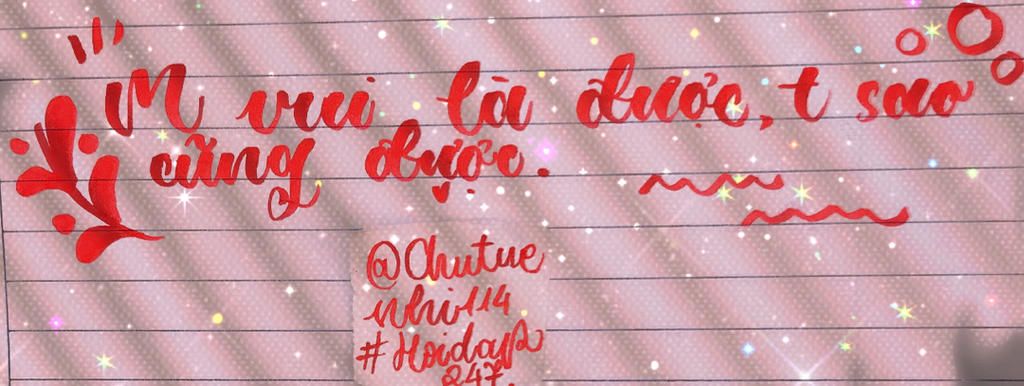 M vui là được, t sao
cũng được.
@Chutue
nhi114
#Hoidap
247.